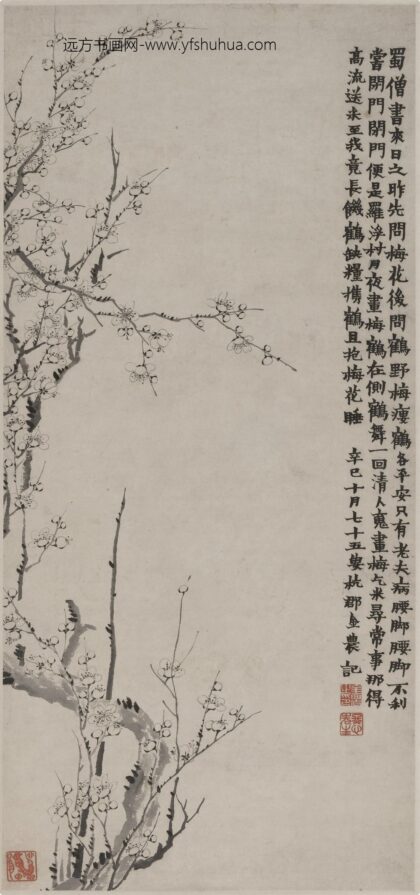 远方书画网-www.yfshuhua.com
蜀僧書來日之昨先問梅花後問鶴野梅瘦鶴各平安只有老夫病腰脚腰脚不利
嘗閉門閉門便是羅浮村月夜畫梅鶴在側鶴舞一回清人魂畫梅乞米尋常事那得
高流送米至我竟長饑鶴缺糧攜鶴且抱梅花睡 辛巳十月七十五叟杭郡金農記